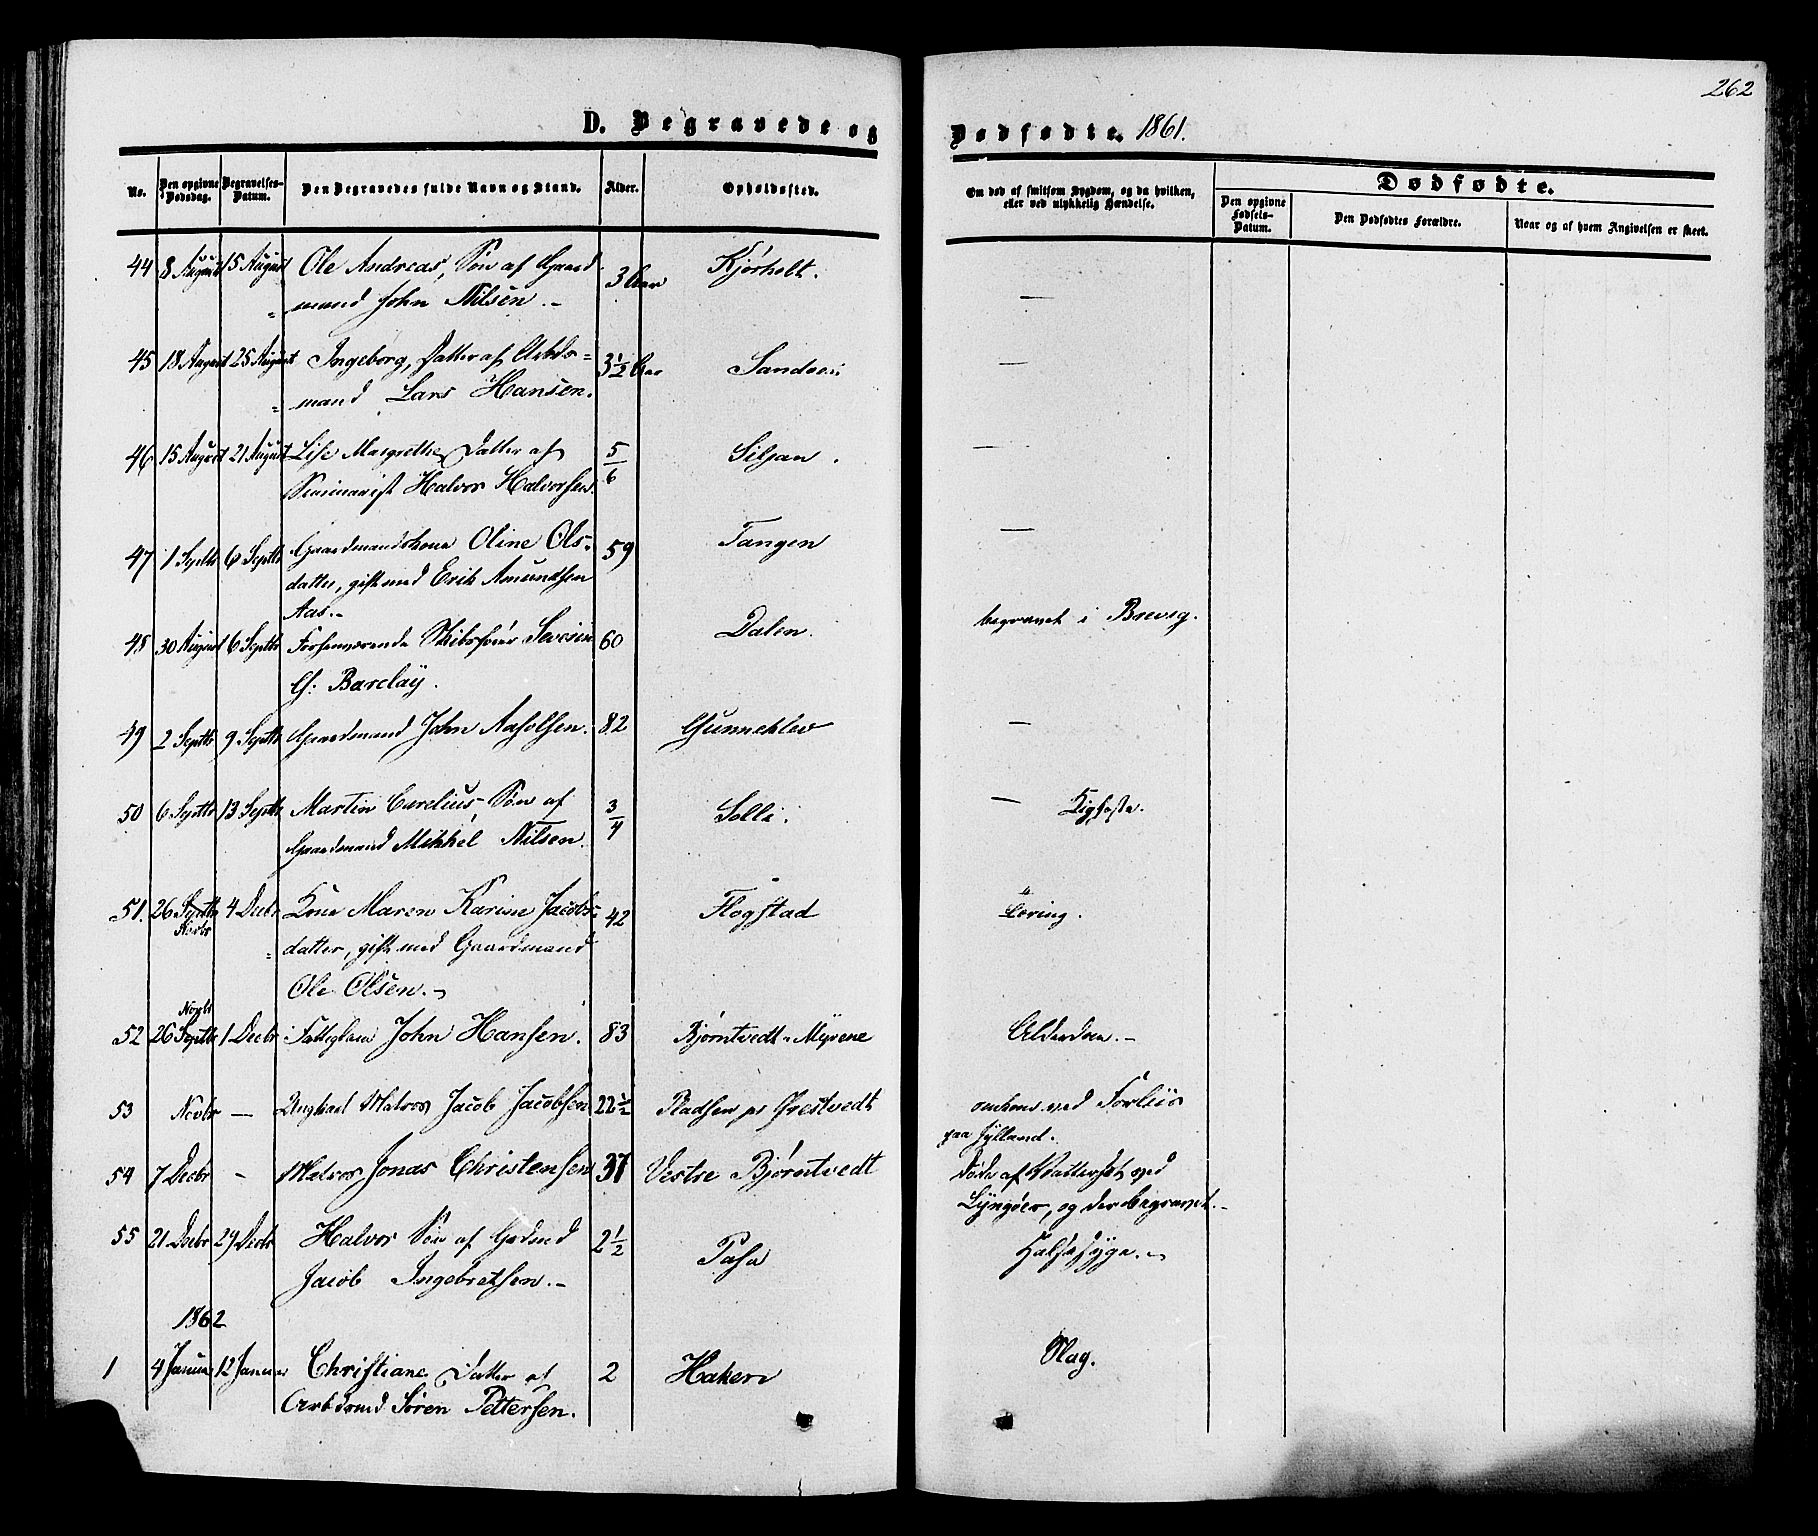 262
D. Begravede og Dødfødte. 1861.
No.
Den opgivne Dødsdag.
Begravelses-Datum.
Den Begravedes fulde Navn og Stand.
Alder.
Opholdssted.
Om død af smitsom Sygdom, og da hvilken, eller ved ulykkelig Hændelse.
Dødfødte.
Den opgivne Fødsels-Datum.
Den Dødfødtes Forældre.
Naar og af hvem Angivelsen er skeet.
44 8 August 15 August Ole Andreas, Søn af Gaard 3 Aar Kjørholt. —
mand John Nilsen. –
45 18 August 25 August Ingeborg, Datter af Arbds= 3½ Aar —
mand Lars Hansen.
46 15 August 21 August Lise Margrethe Datter af 5/6 Siljan. —
Seminarist Halvor Halvorsen.
47 1 Septbr 6 Septbr Gaardmandskone Oline Ols= 59 Tangen —
datter, gift med Erik Amundsen
Aas. –
48 30 August 6 Septbr Forhenværende Skibsfører Severin 60 Dalen. begravet i Brevig.
G: Barclay.
49 2 Septbr 9 Septbr Gaardmand John Aasolsen. 82 Gunneklev —
50 6 Septbr 13 Septbr Martin Carelius, Søn af 3/4 Solli. —
Gaardmand Mikkel Nilsen.
51. 26 Septbr Novbr 4 Decbr Kone Maren Karine Jacobs= 42 Flogstad
datter, gift med Gaardmand
Ole Olsen. –
Novbr
52 26 Septbr 1 Decbr Fattiglem John Hansen. 83 Bjørntvedt-Myrene Alderdom. –
53 Novbr — Ungkarl Matros Jacob Jacobsen 22½ Pladsen p. Grestvedt omkom ved Forliis
paa Jylland.
54 7 Decbr - Matros Jonas Christensen 37 Vestre Bjørntvedt Døde af ved
Lyngøer, og der begravet. –
55 21 Decbr 29 Decbr Halvor Søn af Grdmd 2½ Pasa Halssyge. –
Jacob Ingebretsen. –
1862
1 4 Januar 12 Januar Christiane Datter af 2 Haken Slag.
Arbdsmd Søren Pettersen.